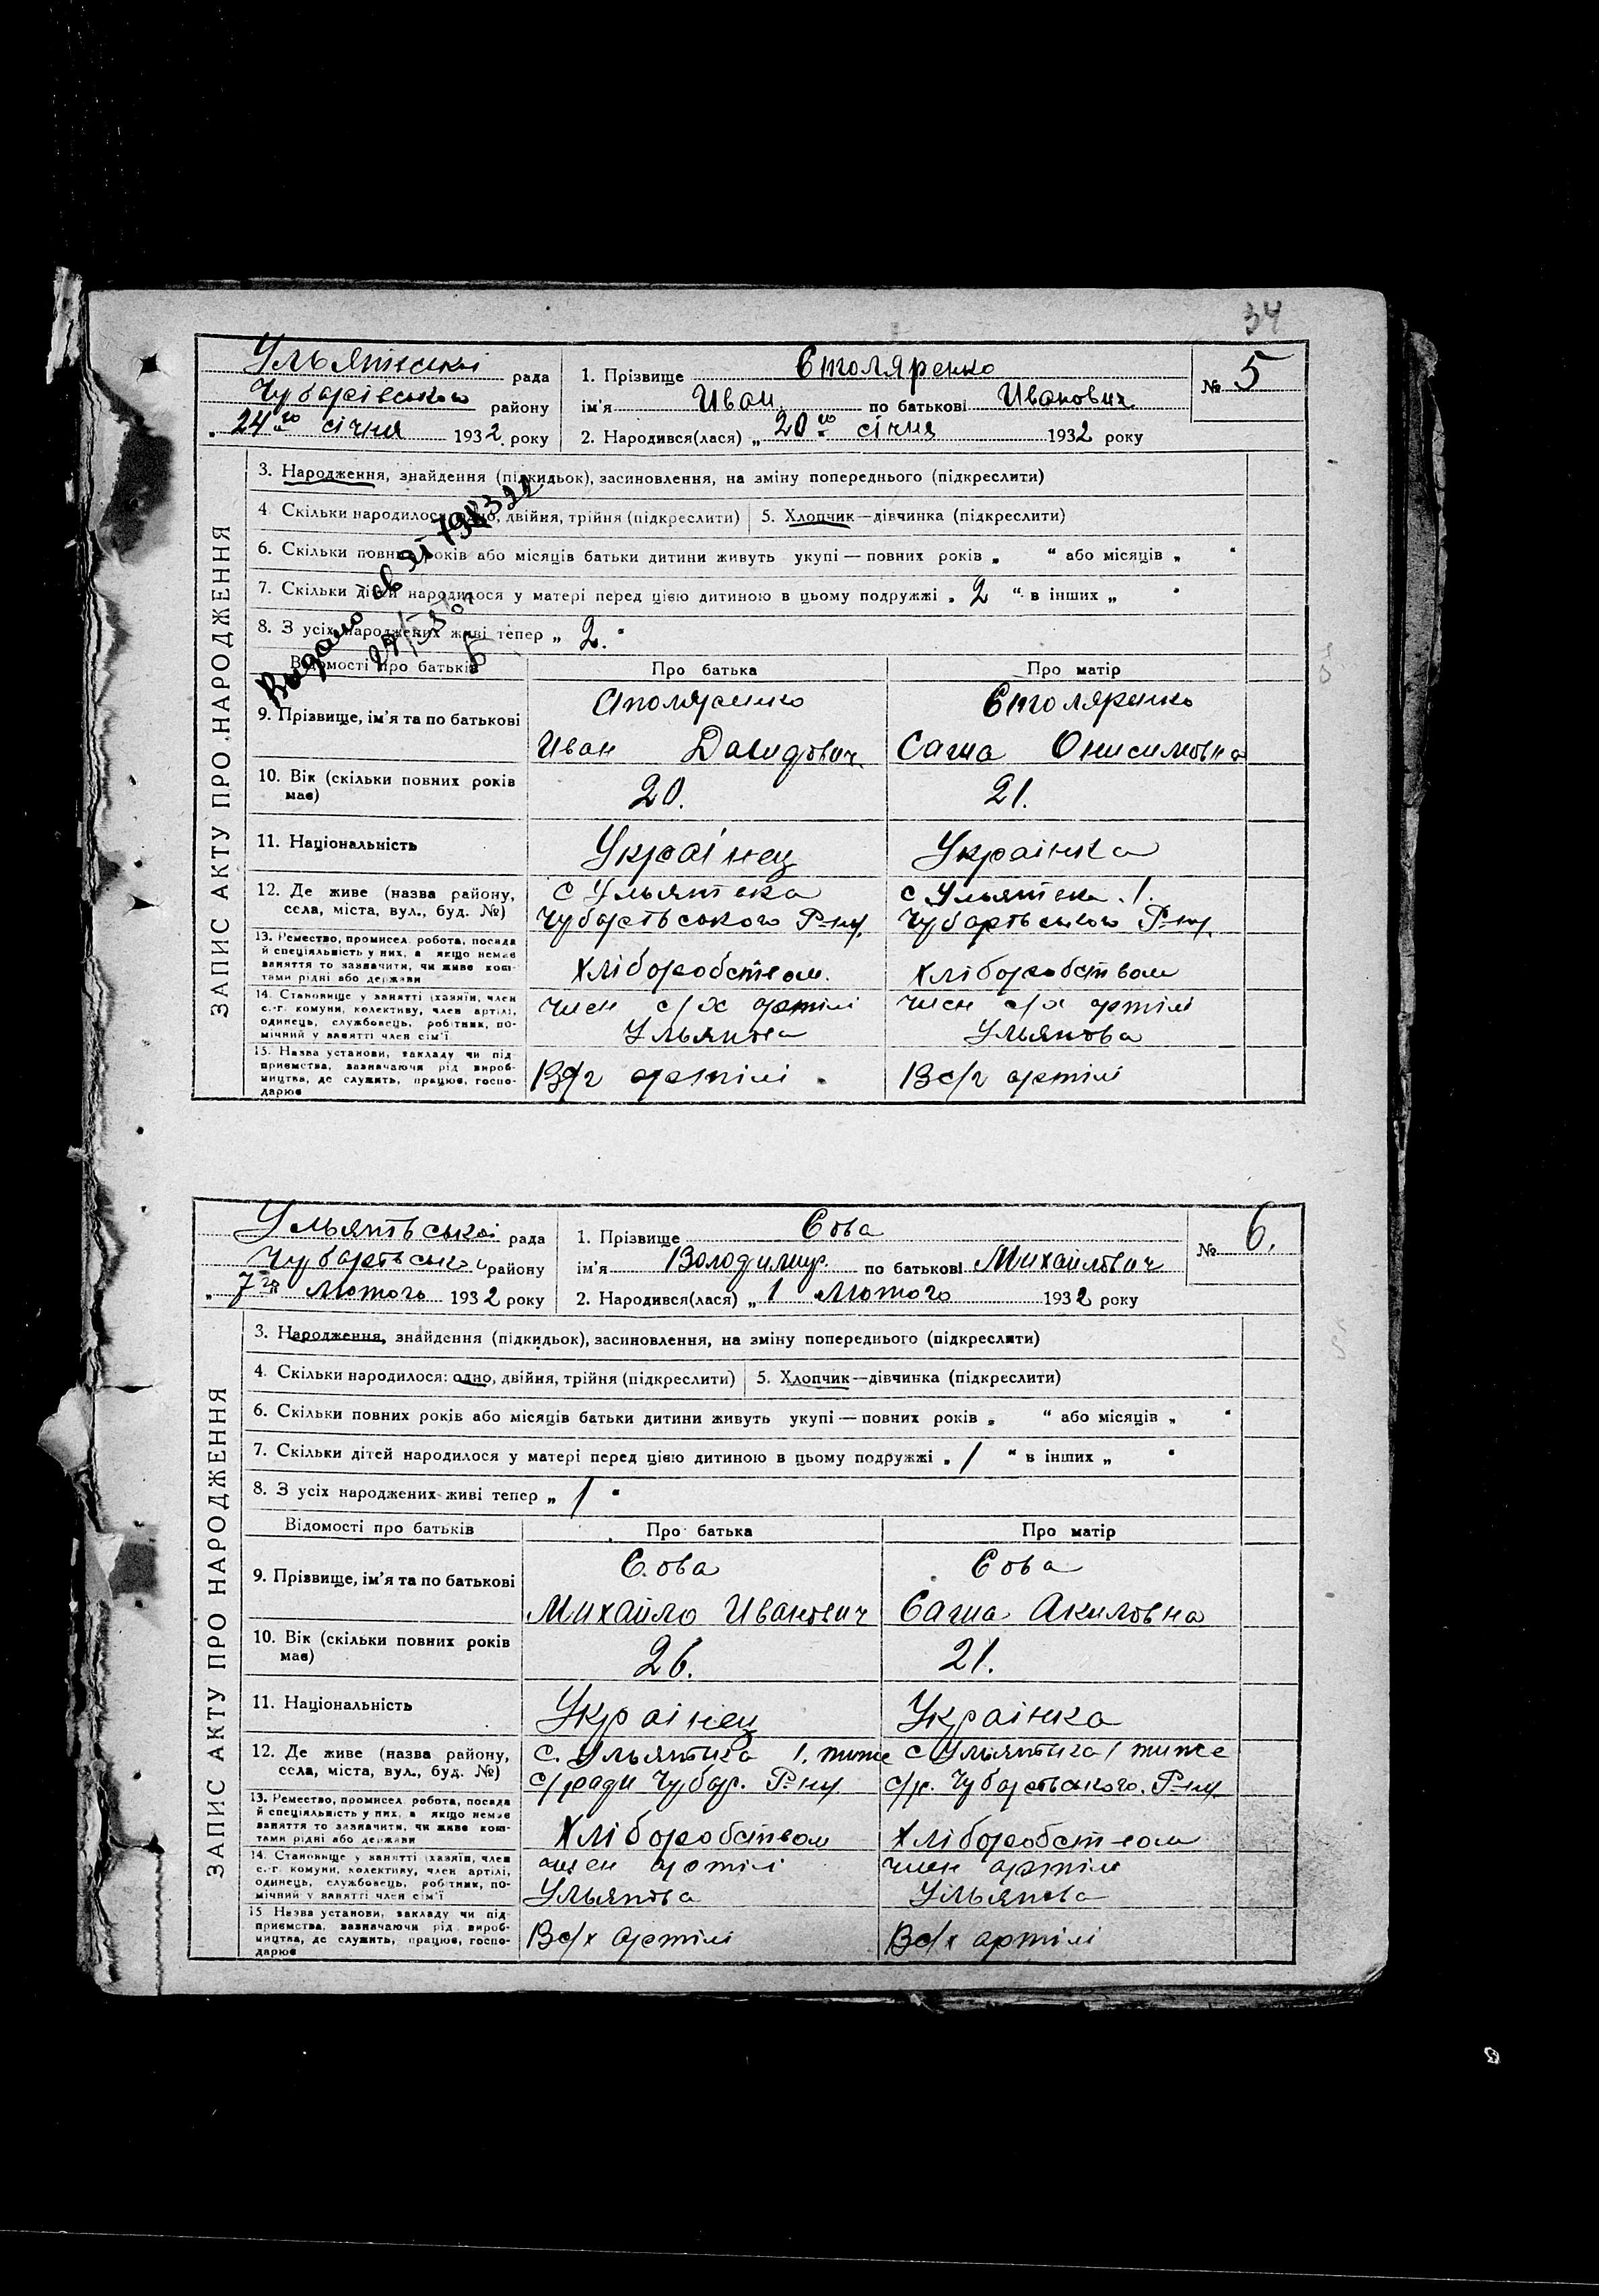 34
рада
Чубарівського району
24го січня 1932 року
1. Прізвище Столяренко
ім'я Иван по батькові Иванович
2. Народився(лася) „ 20го січня 1932 року
№ 5
ЗАПИС АКТУ ПРО НАРОДЖЕННЯ
3. Народження, знайдення (підкидьок), засиновлення, на зміну попереднього (підкреслити)
4 Скільки народилося: одно, двійня, трійня (підкреслити) 5. Хлопчик—дівчинка (підкреслити)
6. Скільки повних років або місяців батьки дитини живуть укупі — повних років „ “ або місяців „ “
7. Скільки дітей народилося у матері перед цією дитиною в цьому подружжі „ 2 “ в інших „ “
8. З усіх народжених живі тепер „ 2. “
Видано св
Відомості про батьків Про батька Про матір
9. Прізвище, ім'я та по батькові
Столяренко Столяренко
Иван Давидович Саша Онисимовна
10. Вік (скільки повних років має) 20. 21.
11. Національність Українец Українка
12. Де живе (назва району, села, міста, вул., буд. №)
Р-ну. Р-ну.
13. Ремество, промисел робота, посада й спеціяльність у них, а якщо немає заняття то зазначити, чи живе коштами рідні або держави
Хліборобством. Хліборобством
14. Становище у занятті (хазяїн, член с.-г. комуни, колективу, член артілі, одинець, службовець, робітник, помічний у занятті член сім'ї
член с/х артілі член с/х артілі
Ульянова Ульянова
15. Назва установи, закладу чи підприємства, зазначаючи рід виробництва, де служить, працює, господарює
В с/г артілі. В с/г артілі
рада
району
7го Лютого 1932 року
1. Прізвище Сова
ім'я Володимир. по батькові Михайлович
2. Народився(лася) „ 1 Лютого 1932 року
№ 6.
ЗАПИС АКТУ ПРО НАРОДЖЕННЯ
3. Народження, знайдення (підкидьок), засиновлення, на зміну попереднього (підкреслити)
4. Скільки народилося: одно, двійня, трійня (підкреслити) 5. Хлопчик—дівчинка (підкреслити)
6. Скільки повних років або місяців батьки дитини живуть укупі — повних років „ “ або місяців „ “
7. Скільки дітей народилося у матері перед цією дитиною в цьому подружжі „ 1 “ в інших „ “
8. З усіх народжених живі тепер „ 1 “
Відомості про батьків Про батька Про матір
9. Прізвище, ім'я та по батькові
Сова Сова
Михайло Иванович Саша Акиловна
10. Вік (скільки повних років має) 26. 21.
11. Національність Українец Українка
12. Де живе (назва району, села, міста, вул., буд. №)
с/ради Чубар. Р-ну. с/р. Чубарівського. Р-ну.
13. Ремество, промисел робота, посада й спеціяльність у них, а якщо немає заняття то зазначити, чи живе коштами рідні або держави
Хліборобством Хліборобством
14. Становище у занятті (хазяїн, член с.-г. комуни, колективу, член артілі, одинець, службовець, робітник, помічний у занятті член сім'ї
член артілі член артілі
Ульянова Ульянова
15 Назва установи, закладу чи підприємства, зазначаючи рід виробництва, де служить, працює, господарює
В с/х артілі В с/х артілі